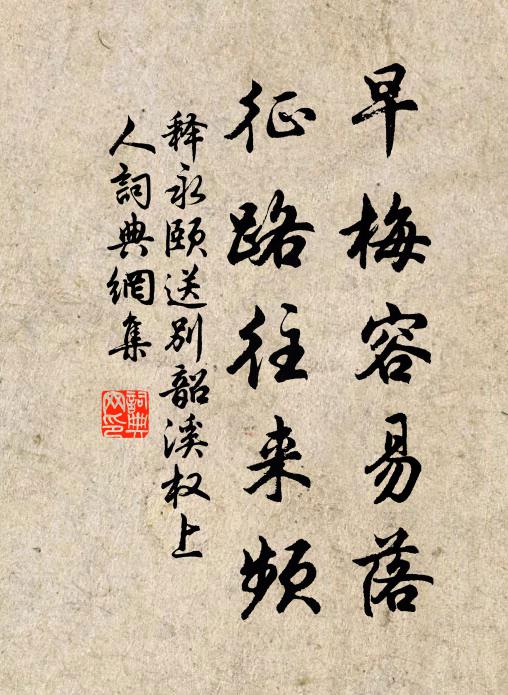 早梅容易落
征路往来頻
释永頤送別韶溪权上
人詞典網集
詞典网印